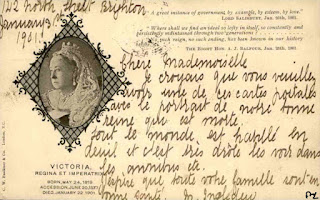 122 North Street Brighton
January 31st
1901.
"A great instance of government, by example, by esteem, by love."
LORD SALISBURY, Jan. 25th, 1901.
"Where shall we find an ideal so lofty in itself, so constantly and
persistently maintained through two generations?
such reign, no such ending, has been known in our history
THE RIGHT HON. A. J. BALFOUR, Jan. 25th, 1901.
Chère Mademoiselle
je croyais que vous vouliez
avoir une de ces cartes postales
avec le portrait de notre bonne
reine qui est morte.
tout le monde est habillé en
deuil et c'est très drôle les voir dans
les
J'espère que toute votre famille sont en
bonne santé.
VICTORIA
REGINA ET IMPERATRIX
BORN, MAY 24, 1819
ACCESSION, JUNE 20, 1837
DIED, JANUARY 22, 1901